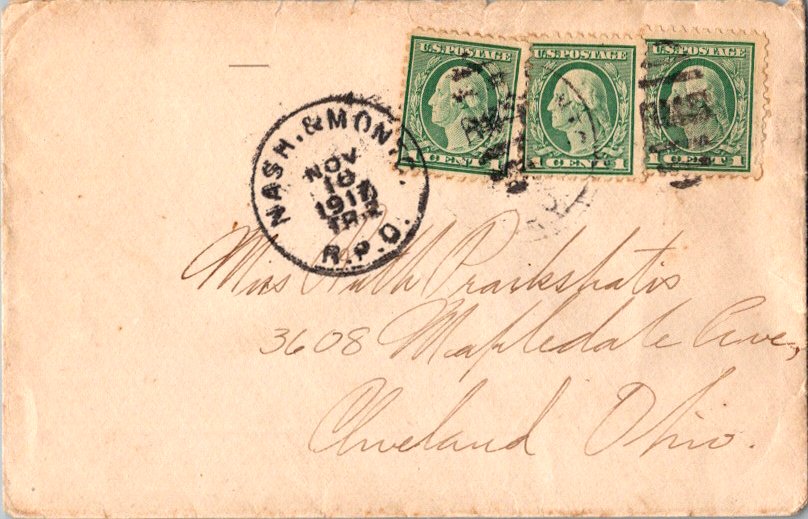 U.S. POSTAGE
1 CENT 1
U.S. POSTAGE
1 CENT 1
U.S. POSTAGE
1 CENT 1
NASH. & MONT.
NOV
10
1917
TR 2
R.P.O.
Miss Ruth
3608 Mapledale Ave,
Cleveland Ohio.